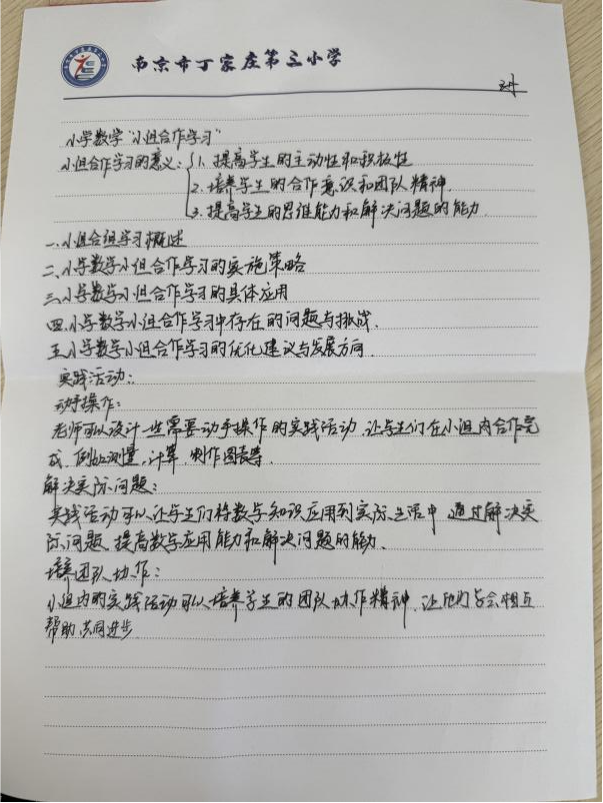 南京市丁家庄第三小学
小学数学“小组合作学习”
小组合作学习的意义：1. 提高学生的主动性和积极性
2. 培养学生的合作意识和团队精神.
3. 提高学生的思维能力和解决问题的能力.
一.小组合组学习概述
二.小学数学小组合作学习的实施策略
三.小学数学小组合作学习的具体应用
四.小学数学小组合作学习中存在的问题与挑战.
五.小学数学小组合作学习的优化建议与发展方向.
实践活动：
动手操作：
老师可以设计一些需要动手操作的实践活动，让学生们在小组内合作完
成，例如测量，计算，制作图表等.
解决实际问题：
实践活动可以让学生们将数学知识应用到实际生活中，通过解决实
际问题，提高数学应用能力和解决问题的能力.
培养团队协作：
小组内的实践活动可以培养学生的团队协作精神，让他们学会相互
帮助，共同进步